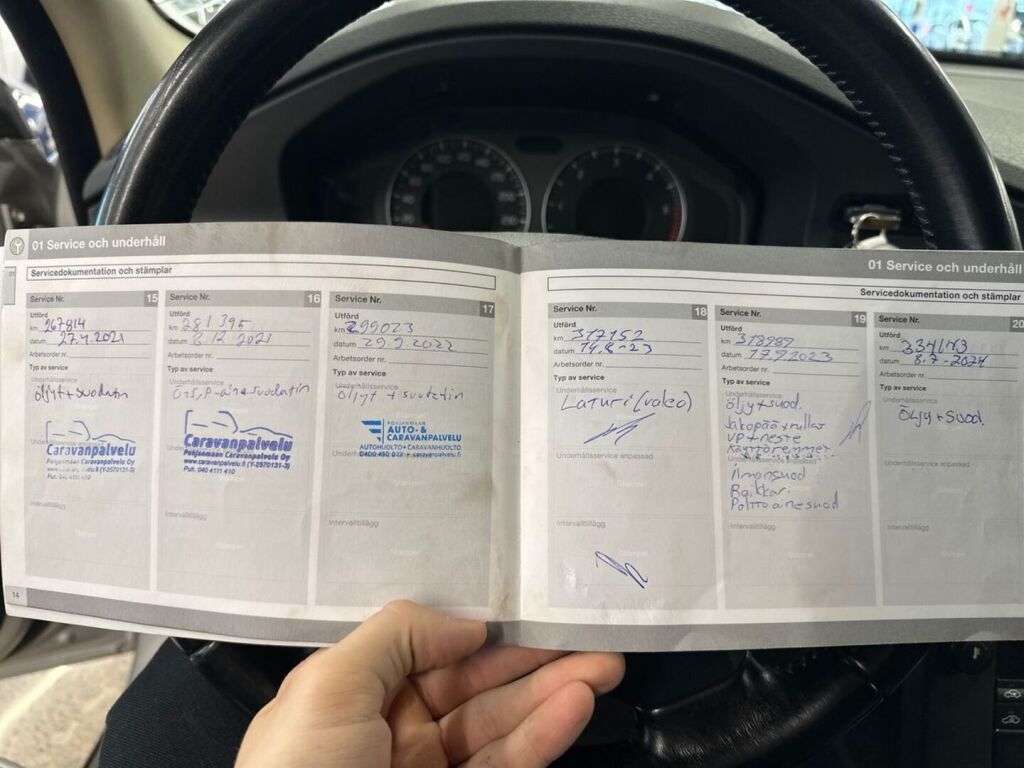 01 Service och underhåll
Servicedokumentation och stämplar
Service Nr. 15
Utförd
km 267814
datum 27.4.2021
Arbetsorder nr.
Typ av service
Underhållsservice
öljyt + suodatin
Underhållsservice anpassad
Caravanpalvelu
Pohjanmaan Caravanpalvelu Oy
Puh. 040 4111 410
Intervalltillägg
14
Service Nr. 16
Utförd
km 281395
datum 8.12.2021
Arbetsorder nr.
Typ av service
Underhållsservice
Caravanpalvelu
Pohjanmaan Caravanpalvelu Oy
www.caravanpalvelu.fi (Y-2570131-3)
Puh. 040 4111 410
Intervalltillägg
Service Nr. 17
Utförd
km 299023
datum 29.9.2022
Arbetsorder nr.
Typ av service
Underhållsservice
öljyt + suodatin
POHJANMAAN
AUTO- &
CARAVANPALVELU
AUTOHUOLTO • CARAVANHUOLTO
Intervalltillägg
01 Service och underhåll
Servicedokumentation och stämplar
Service Nr. 18
Utförd
km 317152
datum 14.8-23
Arbetsorder nr.
Typ av service
Underhållsservice
Laturi (valeo)
Underhållsservice anpassad
Intervalltillägg
Service Nr. 19
Utförd
km 318989
datum 17.9.2023
Arbetsorder nr.
Typ av service
Underhållsservice
öljy + suod.
Jakopää + rullat
VP + neste
Käyttöremmet
Ilmansuod
Raikkari
Polttoainesuod
Intervalltillägg
Service Nr. 20
Utförd
km
datum 8.7-2024
Arbetsorder nr.
Typ av service
Underhållsservice
Öljy + suod.
Underhållsservice anpassad
Intervalltillägg